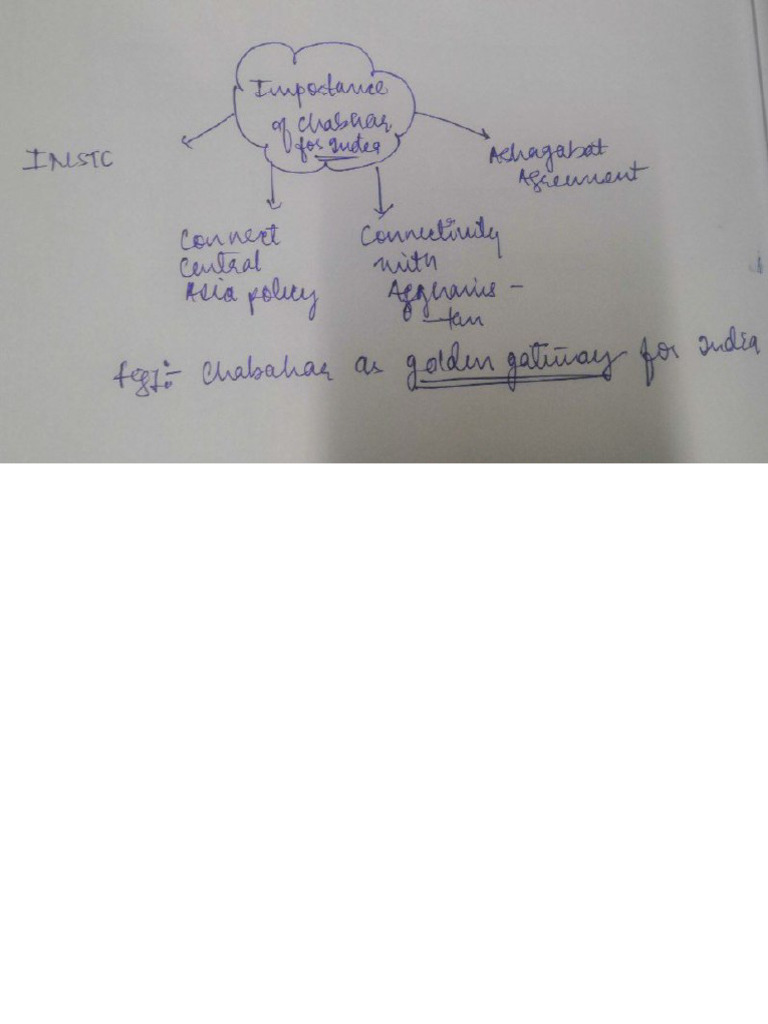 Importance
of Chabahar
for India
INSTC
Ashagabat
Agreement
Connect
Central
Asia policy
Connectivity
with
Afghanis -
tan
fig:- Chabahar as golden gateway for India